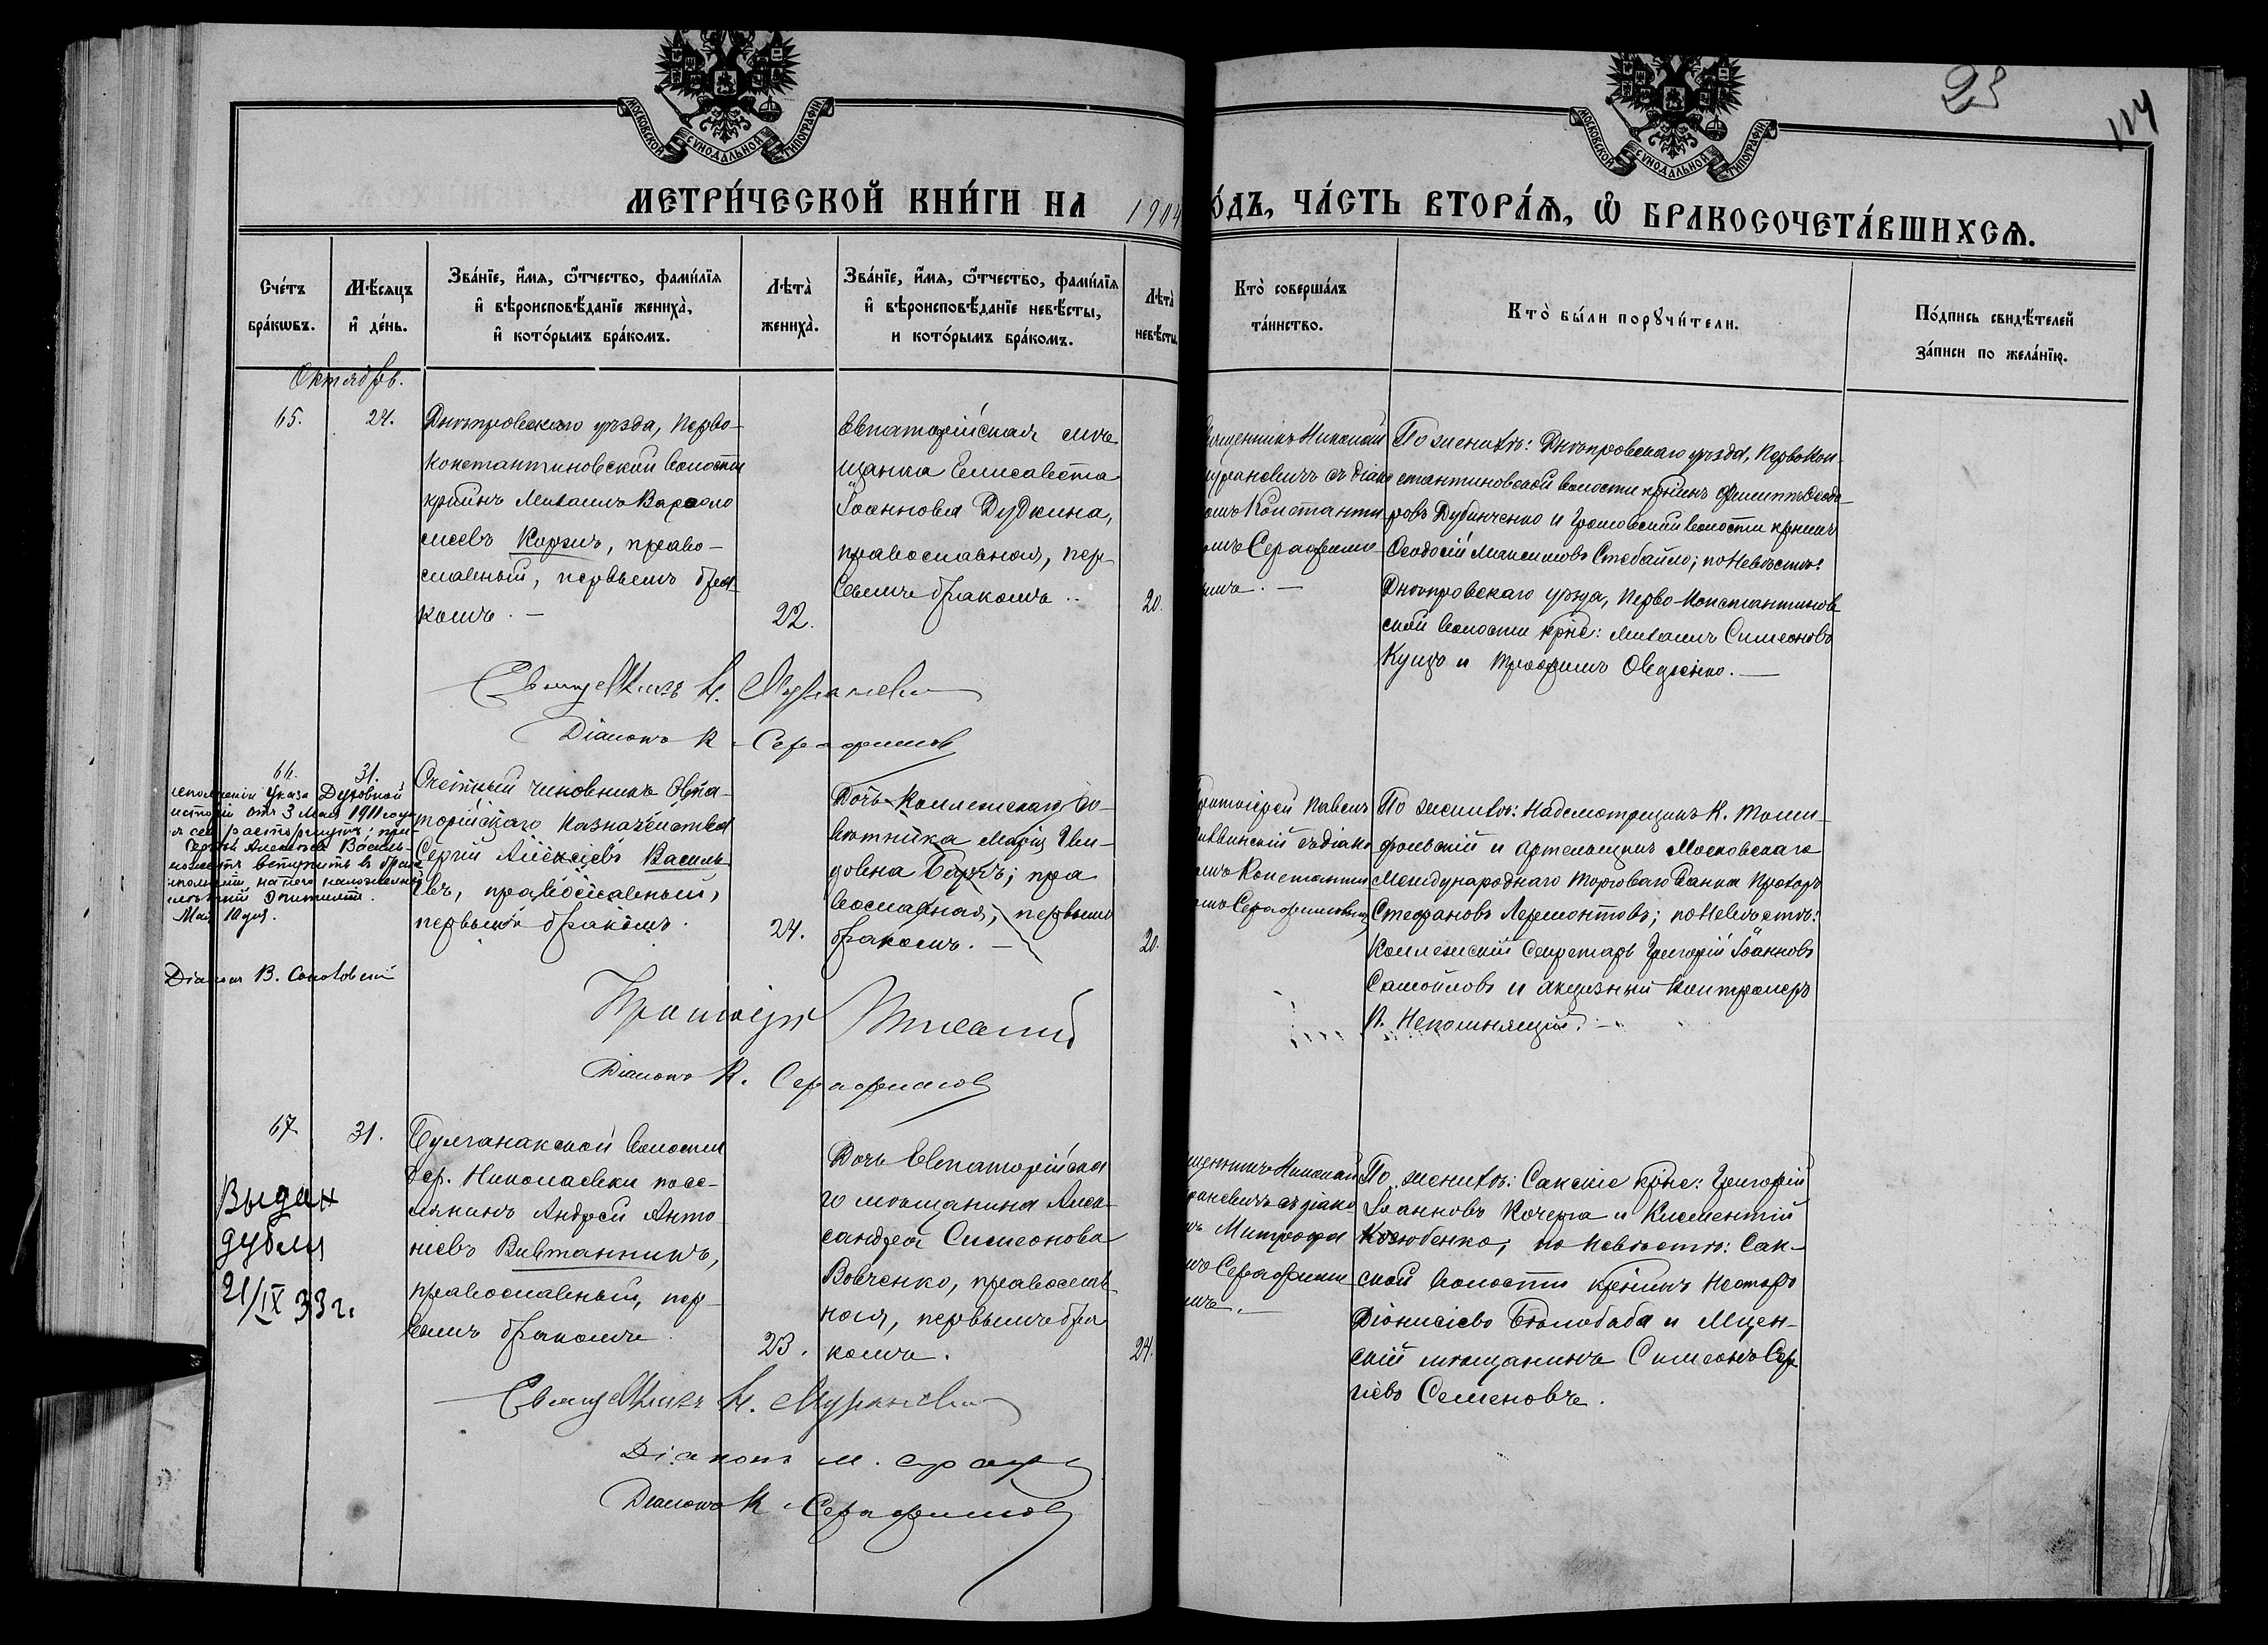 МОСКОВСКОЙ СѴНОДАЛЬНОЙ ТИПОГРАФІИ
МОСКОВСКОЙ СѴНОДАЛЬНОЙ ТИПОГРАФІИ
23
114
МЕТРИ́ЧЕСКОЙ КНИ́ГИ НА 1904
О́ДЪ, ЧА́СТЬ ВТОРА́Ѧ, Ѡ БРАКОСОЧЕТА́ВШИХСѦ.
Сче́тъ
бра́кѡвъ.
Мѣ́сяцъ
и҆ де́нь.
Зва́нїе, и҆́мя, ѻ҆́тчество, фами́лїя
и҆ вѣроисповѣ́данїе жениха̀,
и҆ кото́рымъ бра́комъ.
Лѣта̀
жениха̀.
Зва́нїе, и҆́мя, ѻ҆́тчество, фами́лїя
и҆ вѣроисповѣ́данїе невѣ́сты,
и кото́рымъ бра́комъ.
Лѣта̀
невѣ́сты.
Кто̀ соверша́лъ
та́инство.
Кто̀ бы́ли порꙋчи́тели.
По́дпись свидѣ́телей
за́писи по жела́нїю.
Октябрь.
65.
24.
Днѣпровскаго уѣзда, Перво-
Константиновской волости
крнинъ Михаилъ Варѳоло
меевъ Корж, право-
славный, первымъ бра-
комъ. —
22.
Евпаторійская мѣ
щанка Елисавета
Іоаннова Дудкина,
православная, пер
вымъ бракомъ.
20.
Священникъ Николай
съ діако
Константи
Серафимо
По женихѣ: Днѣпровскаго уѣзда, Перво Кон-
стантиновской волости крнинъ Филиппъ Ѳеодо-
ровъ Дубинченко и Громовской волости крнинъ
Ѳеодосій Максимовъ Стебайло; по невѣстѣ:
Днѣпровскаго уѣзда, Перво-Константинов
ской волости крне: Михаилъ Симеоновъ
Куцъ и Трофимъ Овдѣенко. —
Священникъ Н. Мураневич
Діаконъ К. Серафимов
66.
31.
исполненіи Указа Духовной
отъ 3 Мая 1911 года
сей расторгнутъ; при-
Сергѣй Алексѣевъ Василь-
можетъ вступить въ бракъ
на него наложенной
эпитиміи.
Мая 10 дня.
Діаконъ В. Соколовскій
Счетный чиновникъ Евпа-
торійскаго Казначейства
Сергій Алексіевъ Василь-
евъ, православный,
первымъ бракомъ.
24.
Дочь Коллежскаго Со-
вѣтника Марія
довна Барбъ; пра
вославная, первымъ
бракомъ. —
20.
Протоіерей Павелъ
съ діако
Константи
Серафимовымъ
По женихѣ: Надсмотрщикъ К. Томи-
фольскій и Артельщикъ Московскаго
Международнаго Торговаго Банка Прохоръ
Стефановъ Лермонтовъ; по невѣстѣ:
Коллежскій Секретарь Григорій Іоанновъ
Самойловъ и акцизный Контролеръ
П. Непомнящій. —
Протоіерей
Діаконъ К. Серафимов
67
31.
Выдан
дубля
21/IX 33 г.
Булганакской волости
дер. Николаевки посе-
лянинъ Андрей Анто
ніевъ Вивтанникъ,
православный, пер-
вымъ бракомъ
23.
Дочь Евпаторійска
го мѣщанина Алек-
сандра Симеонова
Вовченко, православ-
ная, первымъ бра
комъ.
24.
Николай
съ діако
Митрофа
Серафим
По женихѣ: Сакскіе крне: Григорій
Іоанновъ Кочерга и Климентій
Козюбенко; по невѣстѣ: Сак-
ской волости крнинъ Несторъ
Діонисіевъ Бѣлобаба и Мцен-
скій мѣщанинъ Симеонъ Сер
гіевъ Семеновъ.
Священникъ Н. Мураневич
Діаконъ М.
Діаконъ К. Серафимов